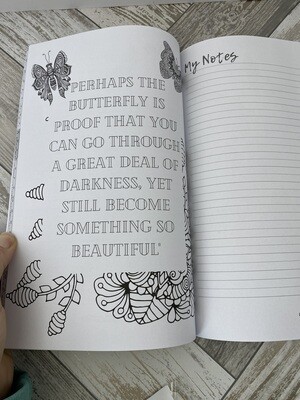 PERHAPS THE
BUTTERFLY IS
PROOF THAT YOU
CAN GO THROUGH
A GREAT DEAL OF
DARKNESS, YET
STILL BECOME
SOMETHING SO
BEAUTIFUL"
My Notes